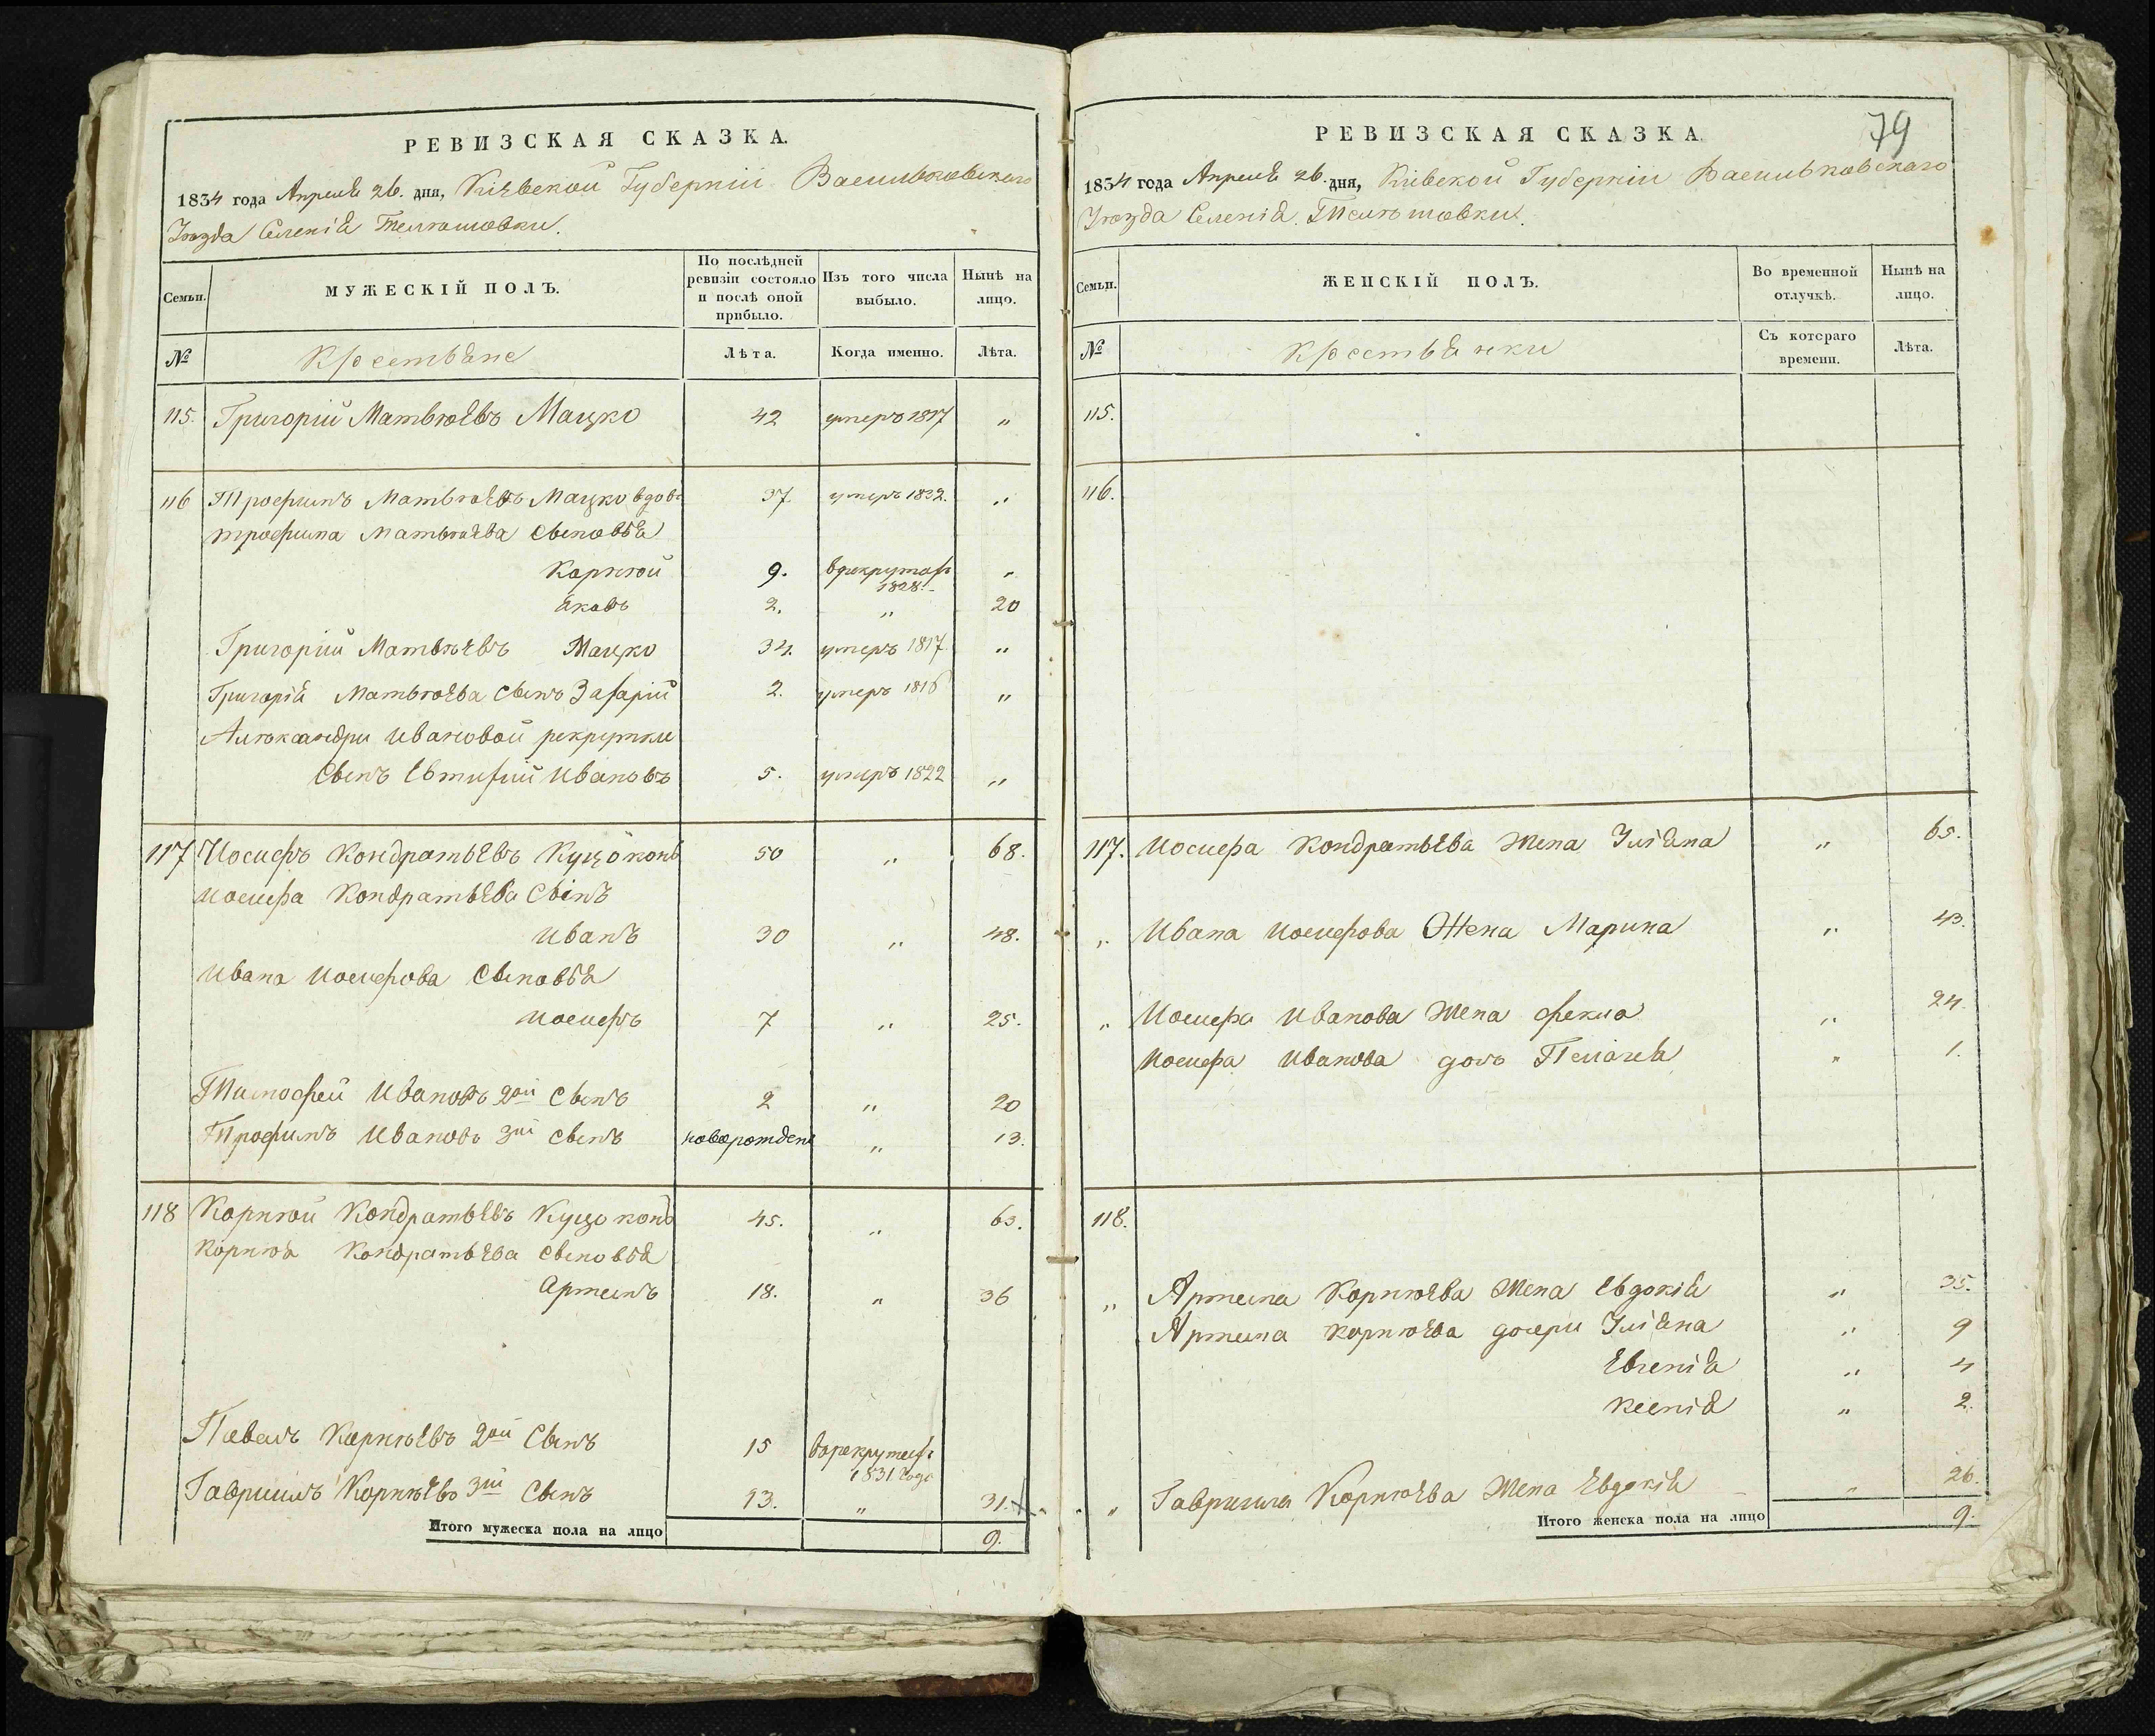 РЕВИЗСКАЯ СКАЗКА.
1834 года Апреля 26. дня, Кіевской Губерніи Васильковскаго
Уѣзда Селенія Телѣшовки.
Семьи.
МУЖЕСКІЙ ПОЛЪ.
По послѣдней ревизіи состояло и послѣ оной прибыло.
Изъ того числа выбыло.
Нынѣ на лицо.
№
Крестьяне
Лѣта.
Когда именно.
Лѣта.
115. Григорій Матвѣевъ Мацко 42 умеръ 1817 "
116 Трофимъ Матвѣевъ Мацко 37. умеръ 1822. "
трофима Матвѣева Сыновья
Корнѣй 9. 1828. "
Яковъ 2. " 20
Григорій Матвѣевъ Мацко 34. умеръ 1817 "
Григорія Матвѣева Сынъ Захарій 2. умеръ 1816 "
Алѣксандри Ивановой рекрутки
Сынъ Евтихій Ивановъ 5. умеръ 1822 "
117 Иосифъ Кондратьевъ Куцоконь 50 " 68.
Иосифа Кондратьева Сынъ
Иванъ 30 " 48.
Ивана Иосифова Сыновья
Иосифъ 7 " 25.
Тимофей Ивановъ 2ой Сынъ 2 " 20
Трофимъ Ивановъ 3ій Сынъ новорожден " 13.
118 Корнѣй Кондратьевъ Куцоконь 45. " 63.
Корнѣя Кондратьева Сыновья
Артемъ 18. " 36
Павелъ Корнѣевъ 2ой Сынъ 15 врекруты
1831 года
Гавриилъ Корнѣевъ 3ій Сынъ 13. " 31.
Итого мужеска пола на лицо 9.
79
РЕВИЗСКАЯ СКАЗКА.
1834 года Апреля 26. дня, Кіевской Губерніи Васильковскаго
Уѣзда Селенія Телѣшовки.
Семьи.
ЖЕНСКІЙ ПОЛЪ.
Во временной отлучкѣ.
Нынѣ на лицо.
№
Крестьянки
Съ котораго времени.
Лѣта.
115.
116.
117. Иосифа Кондратьева Жена Уліяна " 65.
" Ивана Иосифова Жена Марина " 43.
" Иосифа Иванова Жена Фекла " 24.
Иосифа Иванова дочь Пелагея " 1.
118.
" Артема Корнѣева Жена Евдокія " 35.
Артема Корнѣева дочери Уліяна " 9
Евгенія " 4
Ксенія " 2.
" Гавриила Корнѣева Жена Евдокія " 26.
Итого женска пола на лицо 9.